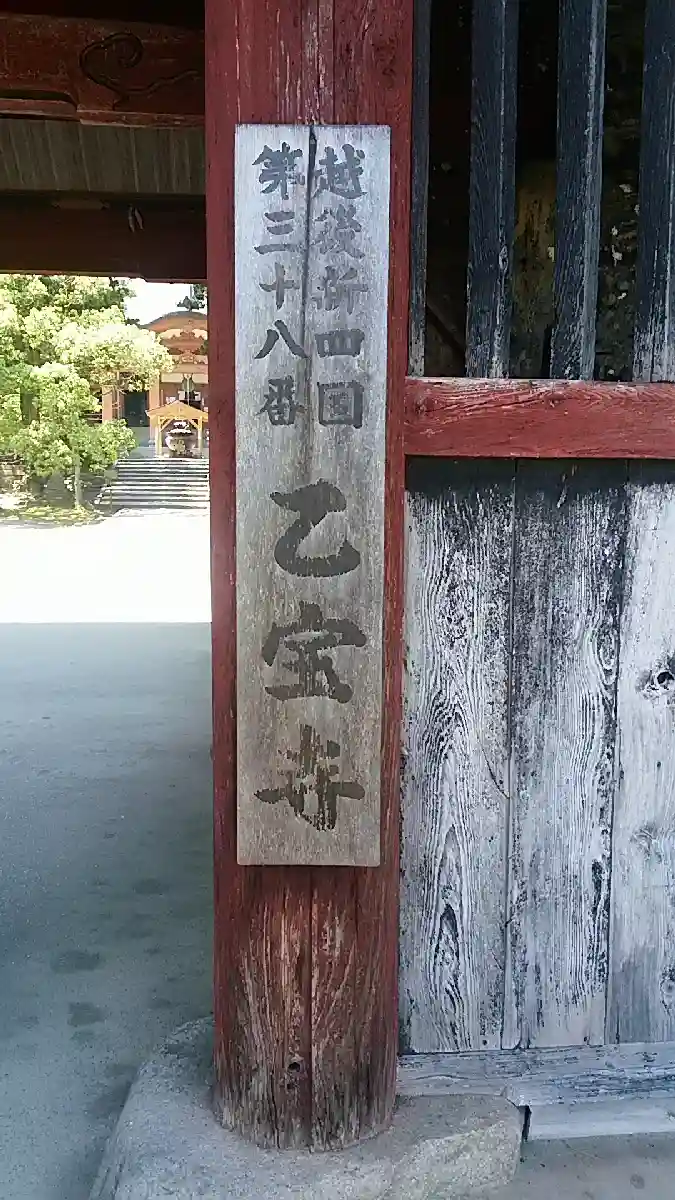 越後新四国
第三十八番
乙宝寺